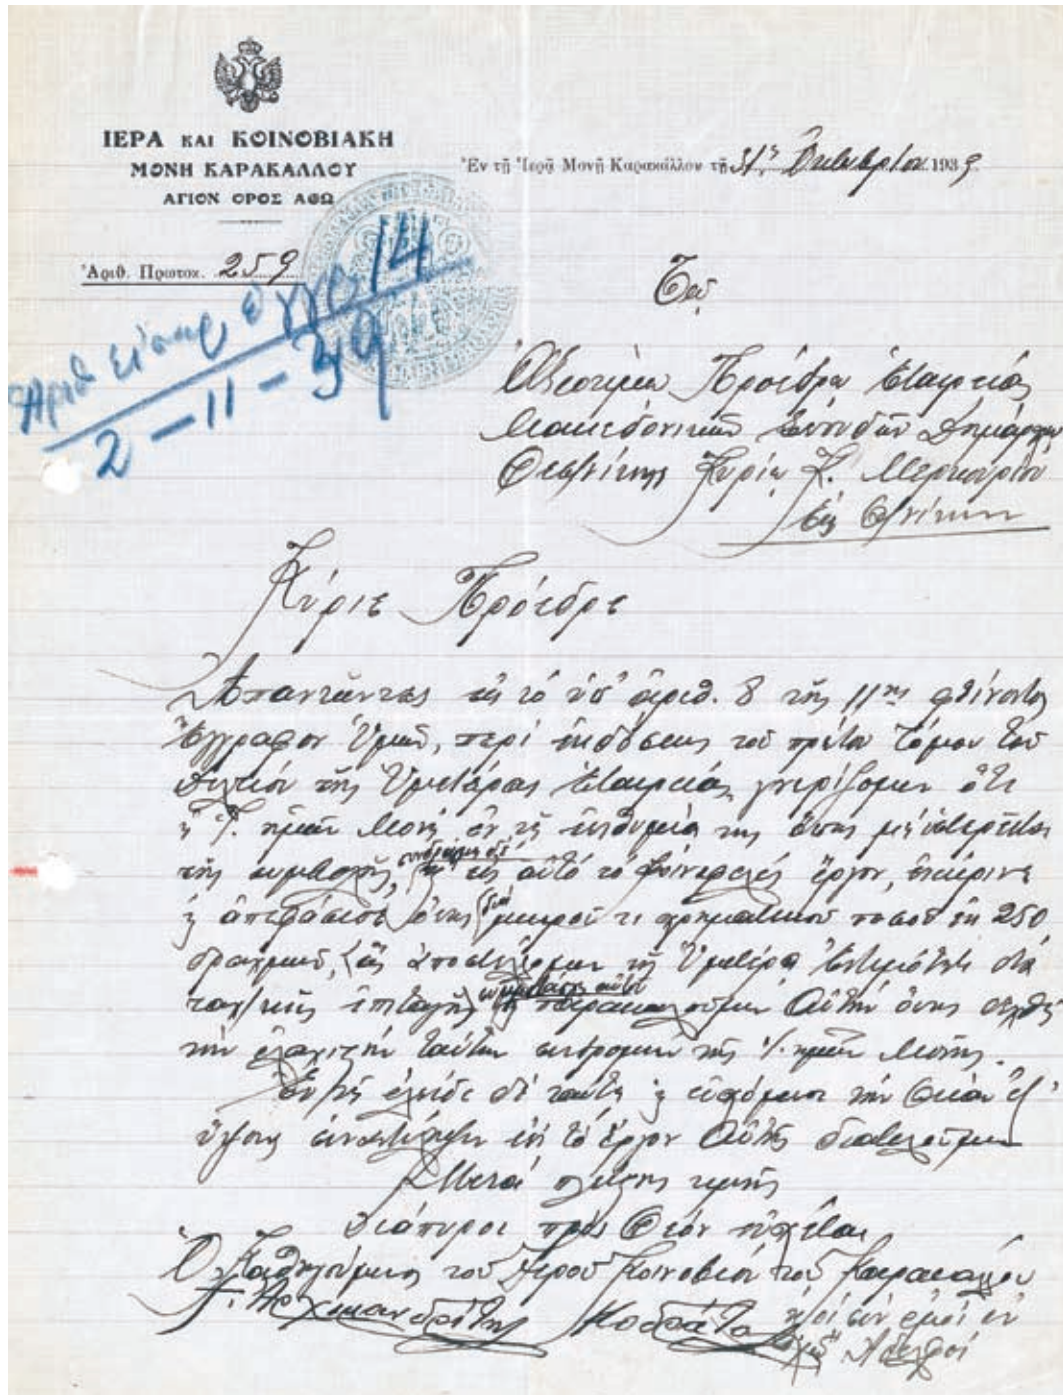 ΙΕΡΑ ΚΑΙ ΚΟΙΝΟΒΙΑΚΗ
ΜΟΝΗ ΚΑΡΑΚΑΛΛΟΥ
ΑΓΙΟΝ ΟΡΟΣ ΑΘΩ
Ἐν τῇ Ἱερᾷ Μονῇ Καρακάλλου τῇ 31ῃ Ὀκτωβρίου 1939
Ἀριθ. Πρωτοκ. 259
Ἀριθ εἰσερ 14
2-11-39
Τῷ
Ἀξιοτίμῳ Προέδρῳ Ἑταιρείας
Μακεδονικῶν Σπουδῶν Δημάρχῳ
Θεσ/νίκης Κυρίῳ Κ. Μερκουρίου
Εἰς Θ/νίκην
Κύριε Πρόεδρε
Ἀπαντῶντες εἰς τὸ ὑπ' ἀριθ. 8 τῆς 11ης φθίνοντος
ἔγγραφον Ὑμῶν, περὶ ἐκδόσεως τοῦ πρώτου τόμου τοῦ
Δελτίου τῆς Ὑμετέρας Ἑταιρείας, γνωρίζομεν ὅτι
ἡ Ἱ. ἡμῶν Μονὴ ἐν τῇ ἐπιθυμίᾳ της ὅπως μὴ ὑστερήσει
τῆς συμβολῆς, εἰς αὐτὸ τὸ κοινωφελὲς ἔργον, ἐνέκρινε
ἀπεφάσισε ὅπως διὰ μικροῦ τι χρηματικοῦ ποσοῦ ἐκ 250
δραχμῶν, ἃς ἀποστέλλομεν τῇ Ὑμετέρᾳ Ἐντιμότητι διὰ
ταχ/κῆς ἐπιταγῆς παρακαλοῦμεν Αὐτὴν ὅπως δεχθῇ
τὴν ἐλαχίστην ταύτην συνδρομὴν τῆς Ἱ. ἡμῶν Μονῆς.
Ἐν τῇ ἐλπίδι δὲ ταύτῃ εὐχόμενοι τὴν θείαν ἐξ
ὕψους ἀντίληψιν ἐπὶ τὸ ἔργον Αὐτῆς διατελοῦμεν
Μετὰ πλείστης τιμῆς
διάπυροι πρὸς Θεὸν εὐχέται
Ὁ Καθηγούμενος τοῦ Ἱεροῦ Κοινοβίου τοῦ Καρακάλλου
Ἀρχιμανδρίτης Κοδράτος κ' οἱ σὺν ἐμοὶ ἐν
Χῷ Ἀδελφοί